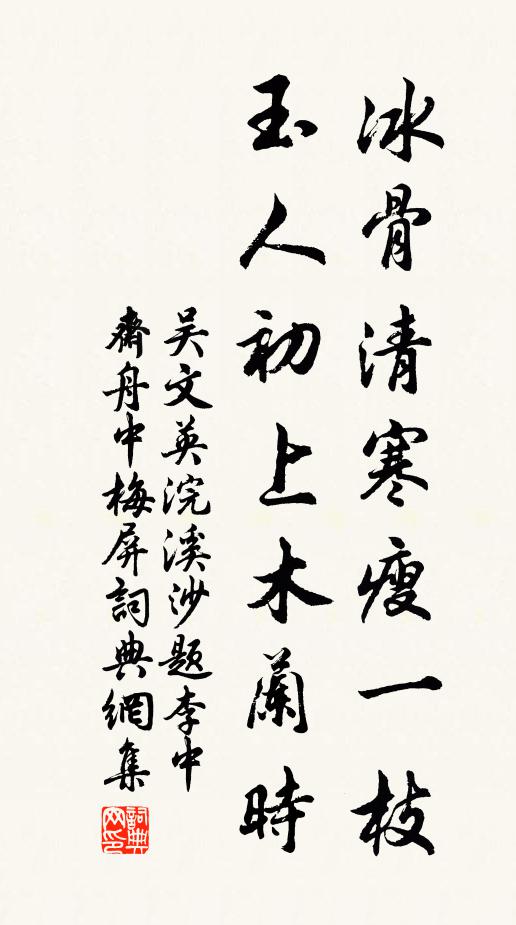 冰骨清寒瘦一枝
玉人初上木蘭時
吴文英浣溪沙題李中
齋舟中梅屏詞典網集
詞典
网印